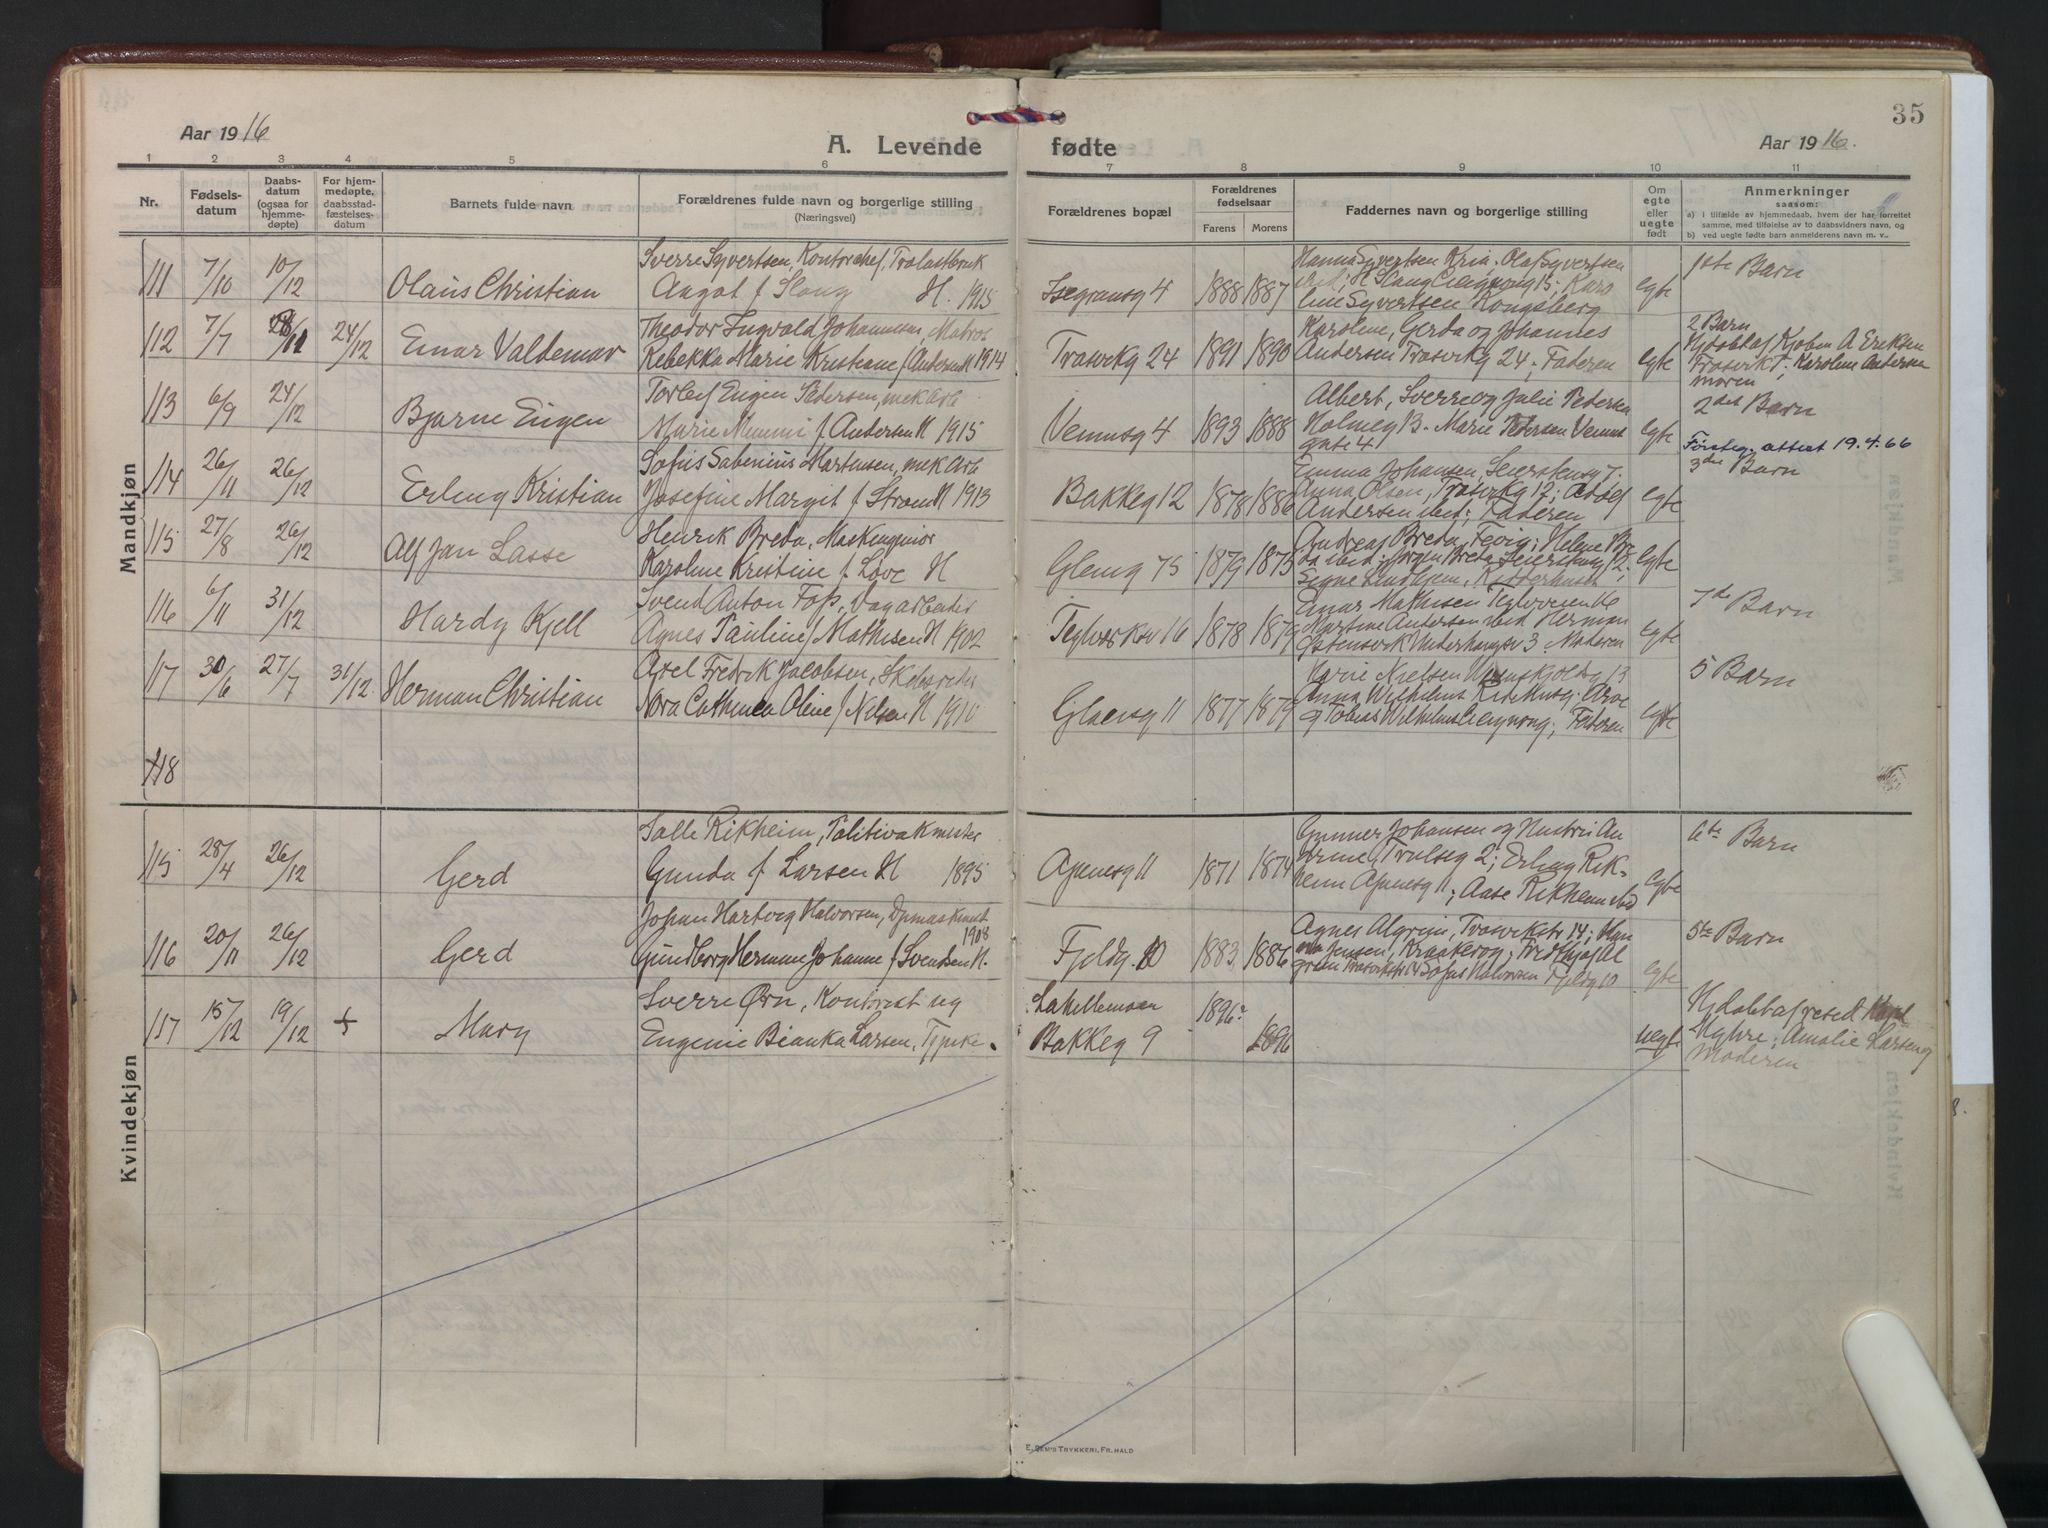 35
Aar 1916
A. Levende fødte
Aar 1916.
1 2 3 4 5 6 7 8 9 10 11
Nr.
Fødselsdatum
Daabsdatum (ogsaa for hjemmedøpte)
For hjemmedøpte, daabsstadfæstelsesdatum
Barnets fulde navn
Forældrenes fulde navn og borgerlige stilling
(Næringsvei)
Forældrenes bopæl
Forældrenes fødselsaar
Farens Morens
Faddernes navn og borgerlige stilling
Om egte eller uegte født
Anmerkninger
saasom:
a) i tilfælde av hjemmedaab, hvem der har forrettet
samme, med tilføielse av to daabsvidners navn, og
b) ved uegte fødte barn anmelderens navn m. v.
Mandkjøn
111 7/10 10/12 Olaus Christian
Sverre Syvertsen, Kontorchef, Trælastbruk
Aagot f Haug H. 1915
Isegransg 4 1888 1887
Hanna Syvertsen Kria. Olaf Syvertsen
ibid; H Haug 15; Karo
line Syvertsen Kongsberg
egte
1ste Barn
112 7/7 24/12 Einar Valdemar
Theodor Ingvald Johannesen, Matros
Rebekka Marie Kristiane f Andersen H 1914
Trosvikg 24 1891 1890
Karoline, Gerda og Johannes
Andersen Trosvikg 24; Faderen
egte
2 Barn
Hjdøbt af Kjøbm A Eriksen
Trosvik, Karoline Andersen
moren
113 6/9 24/12 Bjarne Eugen
Torleif Eugen Pedersen, mek Arb
Marie Mimmi f Andersen H 1915
Venusg 4 1893 1888
Albert, Sverre og Julie Pedersen
Holmeg 13. Marie Pedersen Venus
gate 4
egte
2det Barn
Fødselsg. attest 19.4.66
114 26/11 26/12 Erling Kristian
Sofus Sabinius Martinsen, mek Arb
Josefine Margit f Strøm H 1913
Bakkeg 12 1878 1886
Emma Johansen, Seierstensg 7.
Anna Olsen, Trosvikg 17; Adolf
Andersen ibid; Faderen
egte
3die Barn
115 27/8 26/12 Alf Jan Lasse
Henrik Breda, Maskingeniør
Karoline Kristine f. Love H
Glemg 75 1879 1875
Andreas Breda, Fevig; Helene Bre
da ibid; Jørgen Breda Seierstensg 2;
Signe Lindhjem,
egte
116 6/11 31/12 Hardy Kjell
Svend Anton Foss, Vogarbeider
Agnes Pauline f Mathisen H 1902
Teglverksv 16 1878 1879
Einar Mathisen Teglverksv 16
Martine Andersen ibid Herman
Østensvik 3. Moderen
egte
7de Barn
117 30/6 27/7 31/12 Herman Christian
Axel Fredrik Jacobsen, Skibsreder
Nora Cathinca Oline f Nilsen H 1910
Glaersg 11 1877 1879
Marie Nielsen 13
Anna Wilhelms Arve
og Tobias Wilhelms; Faderen
egte
5 Barn
118
Kvindekjøn
115 28/4 26/12 Gerd
Salle Rikheim, Politivaktmester
Gunda f Larsen H 1895
Apenesg 11 1871 1874
Gunnar Johansen og Hustru An
Trulseg 2; Erling Rik-
heim Apenesg 11; Aase Rikheim ibid
egte
6te Barn
116 20/11 26/12 Gerd
Johan Hartvig Halvorsen, Dpmaskinist
1908
Gundborg Herman Johanne f Svendsen H.
Fjeldg. 10 1883 1886
Agnes Algrim, Trosvikstr 14; Han
na Jensen, Kraakerøy; Fredthjof Al
grim Trosvikstr 14 Sofus Halvorsen Fjeldg 10
egte
5te Barn
117 15/12 19/12 + Mary
Sverre Ørn, Kontorist ug
Eugenie Bianka Larsen, Tjpike.
Lahellemoen
Bakkeg 9
1896? 1896
uegt.
Hjdøbt af resed Kapl
Myhre; Amalie Larsen og
Moderen
E. Sem's Trykkeri, Fr.hald